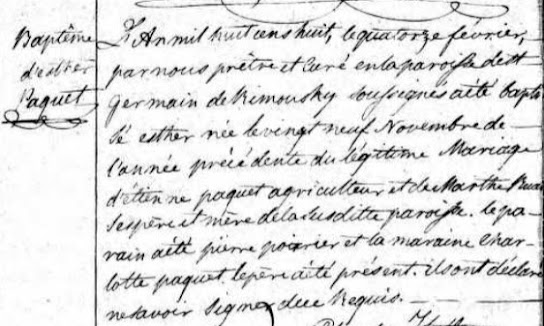 Baptême
d'esther
Paquet
L'An mil huit cens huit, le quatorze février,
par nous prêtre et Curé en la paroisse de st
germain de Rimousky soussignés a été bapti
sé esther née le vingt neuf Novembre de
l'année précédente du légitime Mariage
d'étienne paquet agriculteur et de Marthe
ses père et mère de la susditte paroisse. le pa-
rain a été pierre poirier et la maraine Char-
lotte paquet. le père a été présent. ils ont déclaré
ne savoir signer de ce Requis.